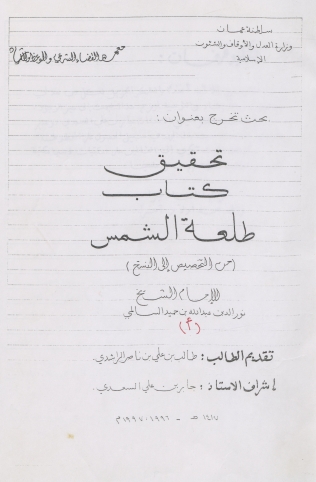 سلطنة عمان
وزارة العدل والأوقاف والشئون
الإسلامية
معهد القضاء الشرعي والوعظ والإرشاد
بحث تخرج بعنوان :
تحقيق
كتاب
طلعة الشمس
(من التخصيص إلى النسخ)
للإمام الشيخ
نور الدين عبدالله بن حميد السالمي
(٢)
تقديم الطالب : طالب بن علي بن ناصر الراشدي.
إشراف الاستاذ : جابر بن علي السعدي.
١٤١٧ هـ - ١٩٩٦ - ١٩٩٧ م